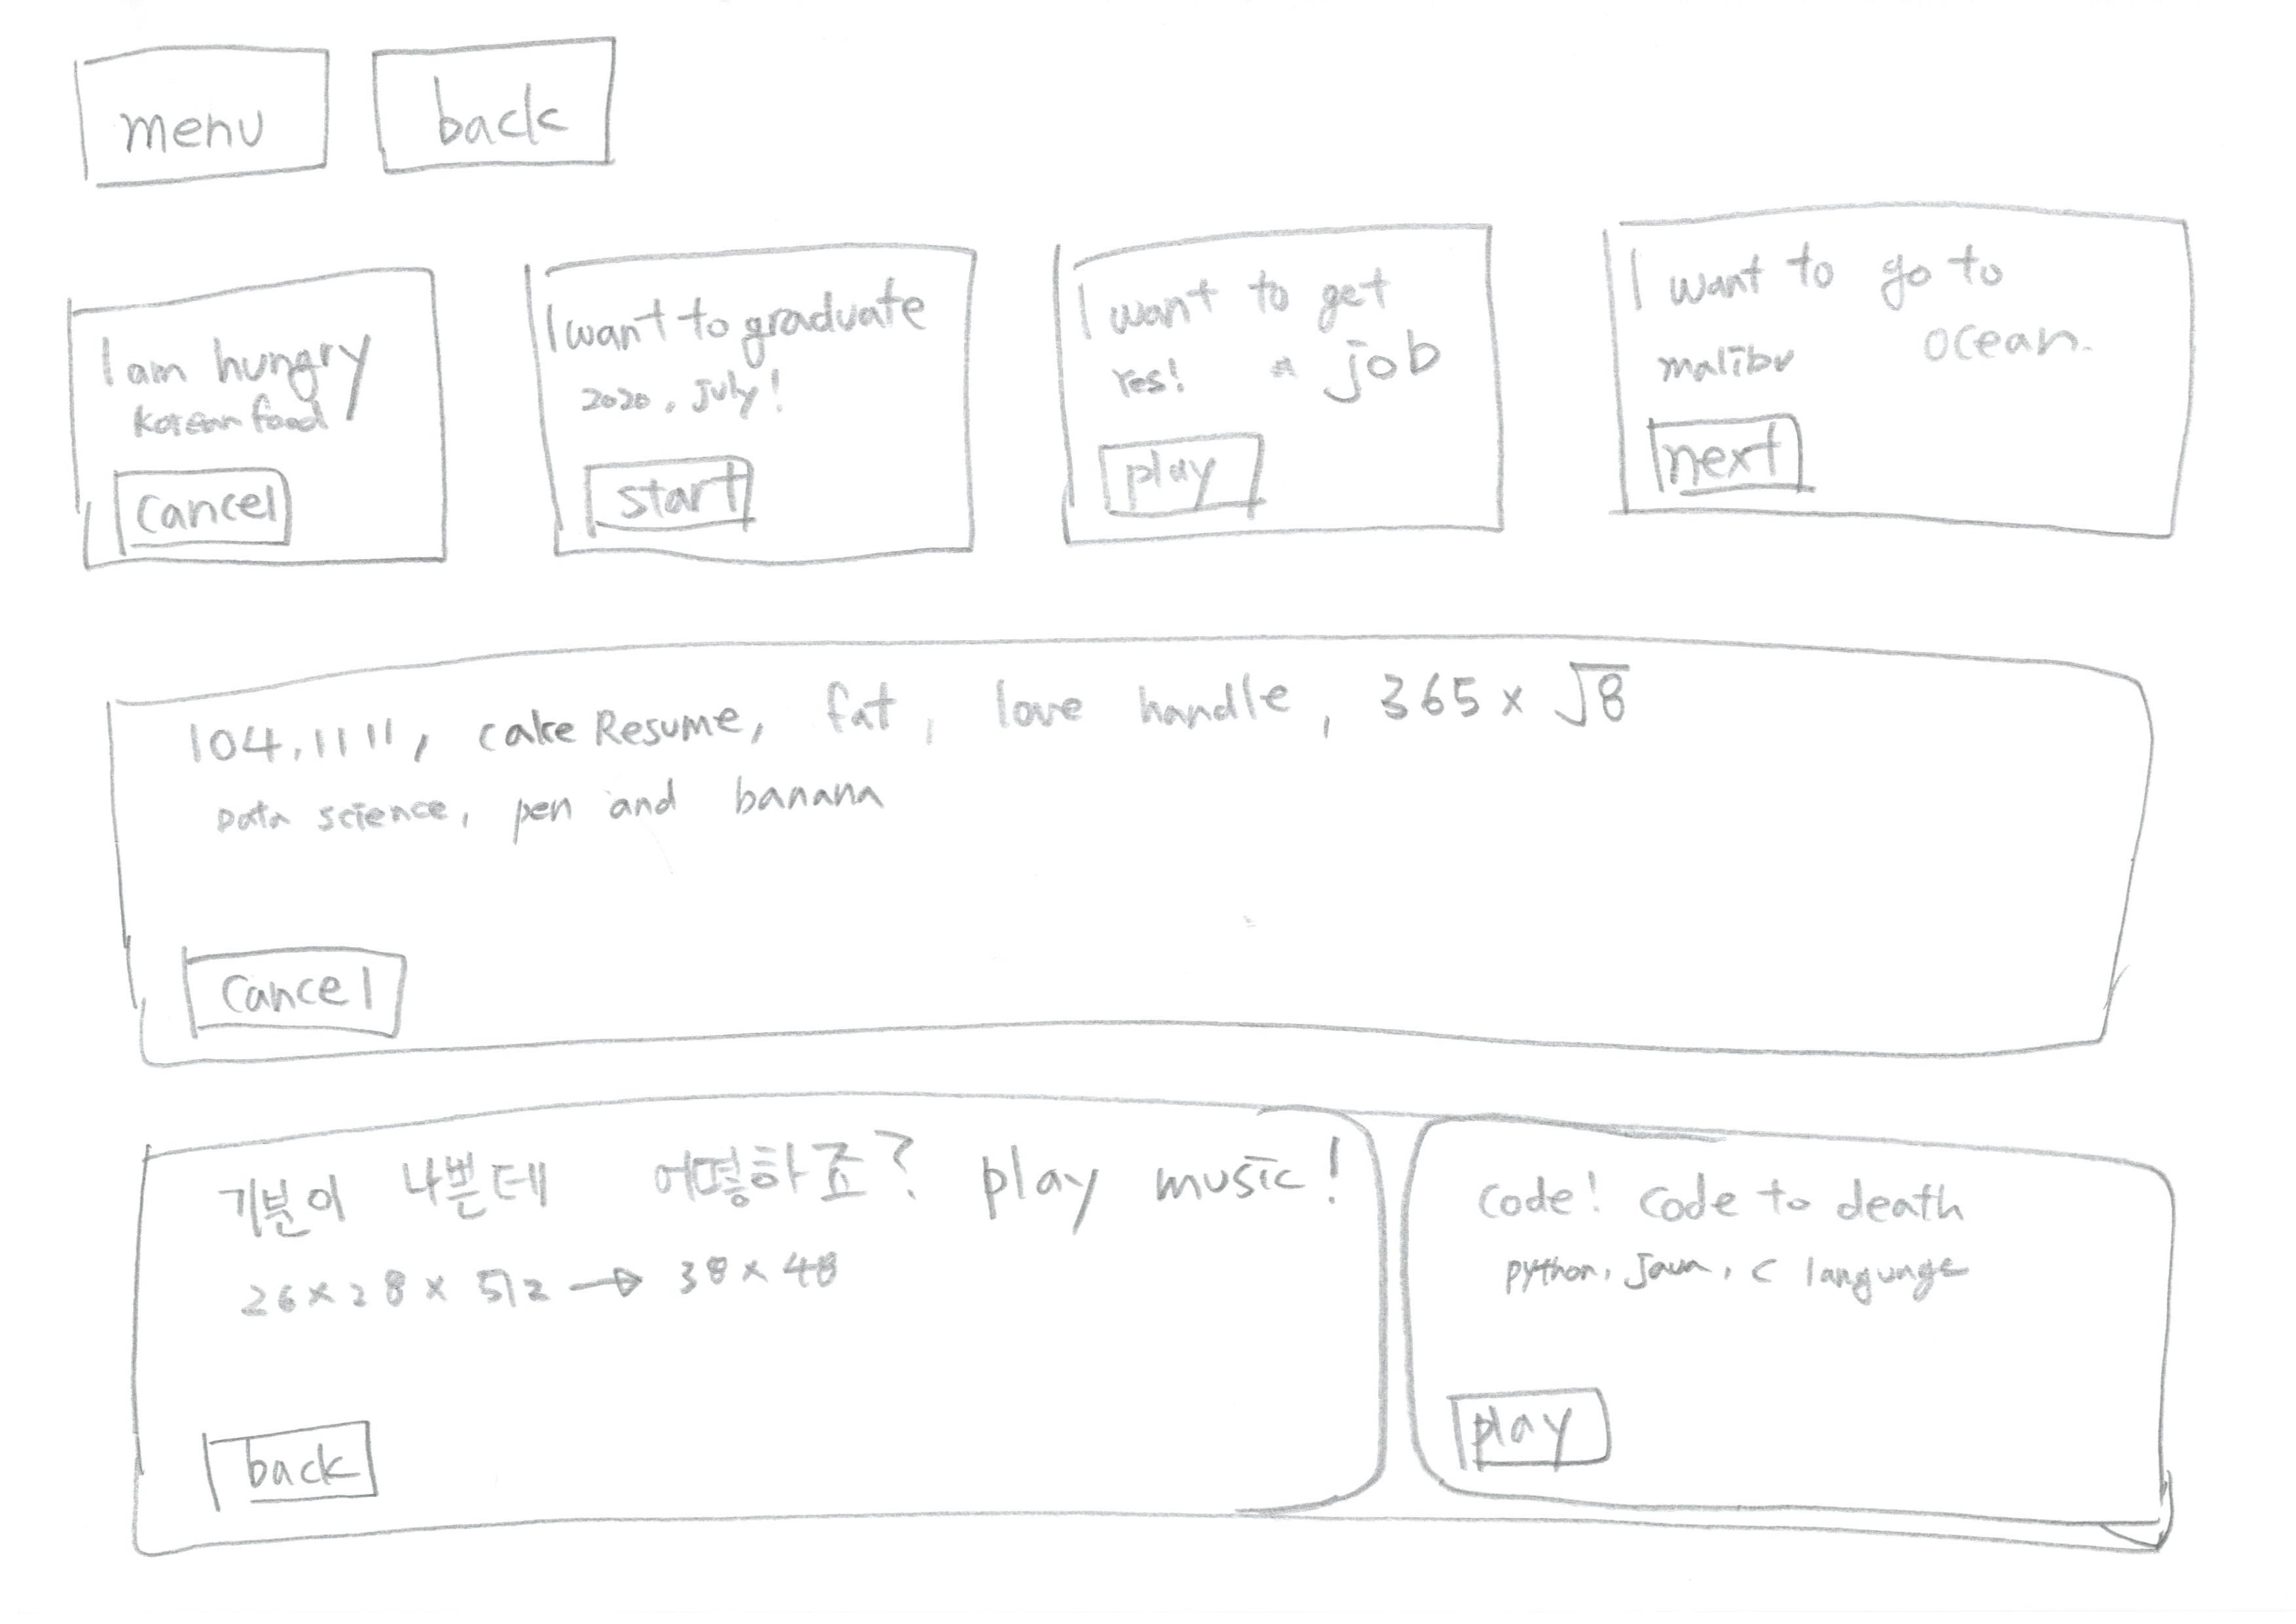 menu back
I am hungry
Korean food
cancel
I want to graduate
2020, july!
start
I want to get
Yes! a job
play
I want to go to
malibu ocean.
next
104,1111, cake Resume, fat, love handle, 365 x √8
Data science, pen and banana
cancel
기분이 나쁜데 어떻하죠? play music!
26 x 28 x 512 → 38 x 48
back
code! code to death
python, Java, C language
play